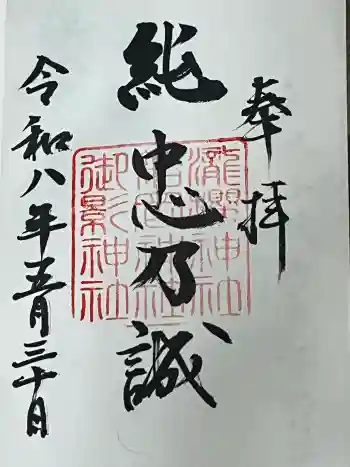 奉拝
純忠乃誠
令和八年五月三十日
神社
神社
御影神社